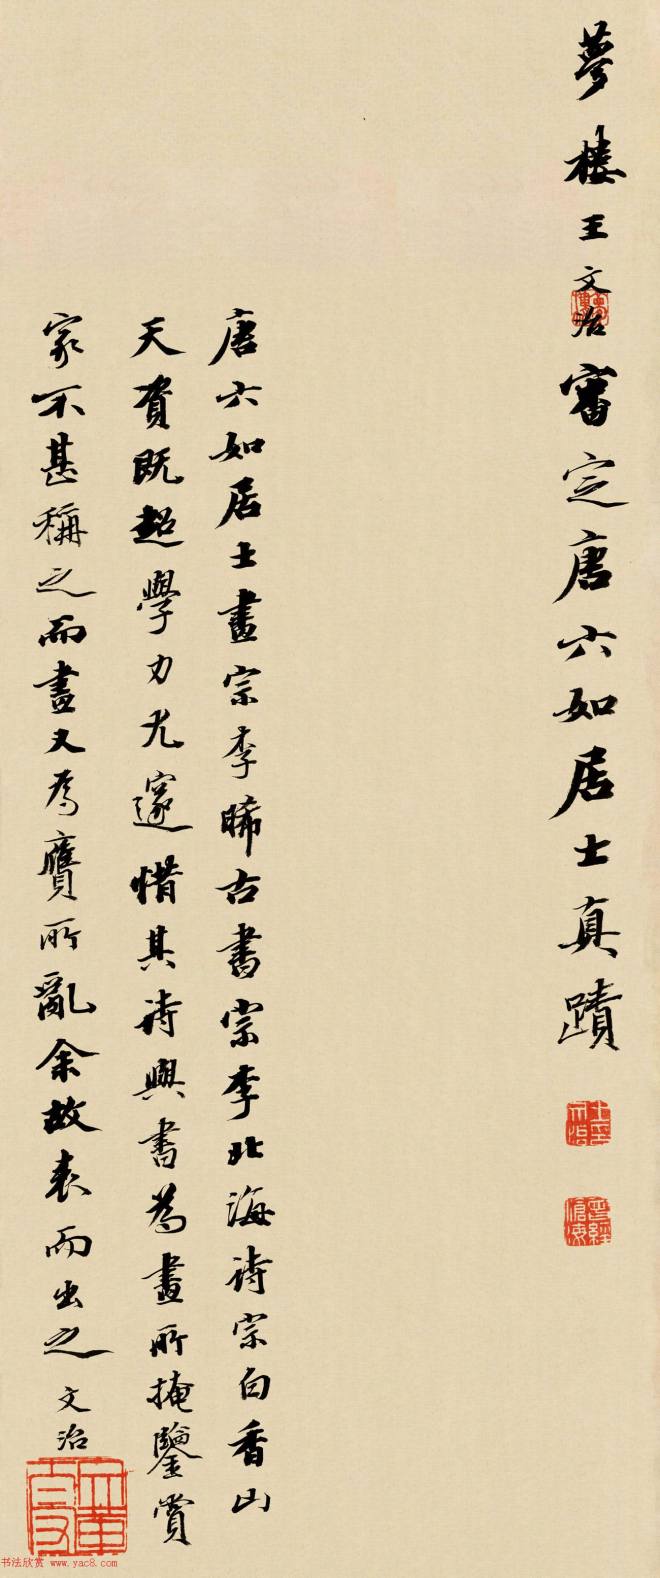 夢樓王文治審定唐六如居士真蹟
唐六如居士畫宗李晞古書宗李北海詩宗白香山
天資既超學力尤邃惜其詩與書為畫所掩鑒賞
家不甚稱之而畫又為贋所亂余故表而出之 文治
书法欣赏 www.yac8.com